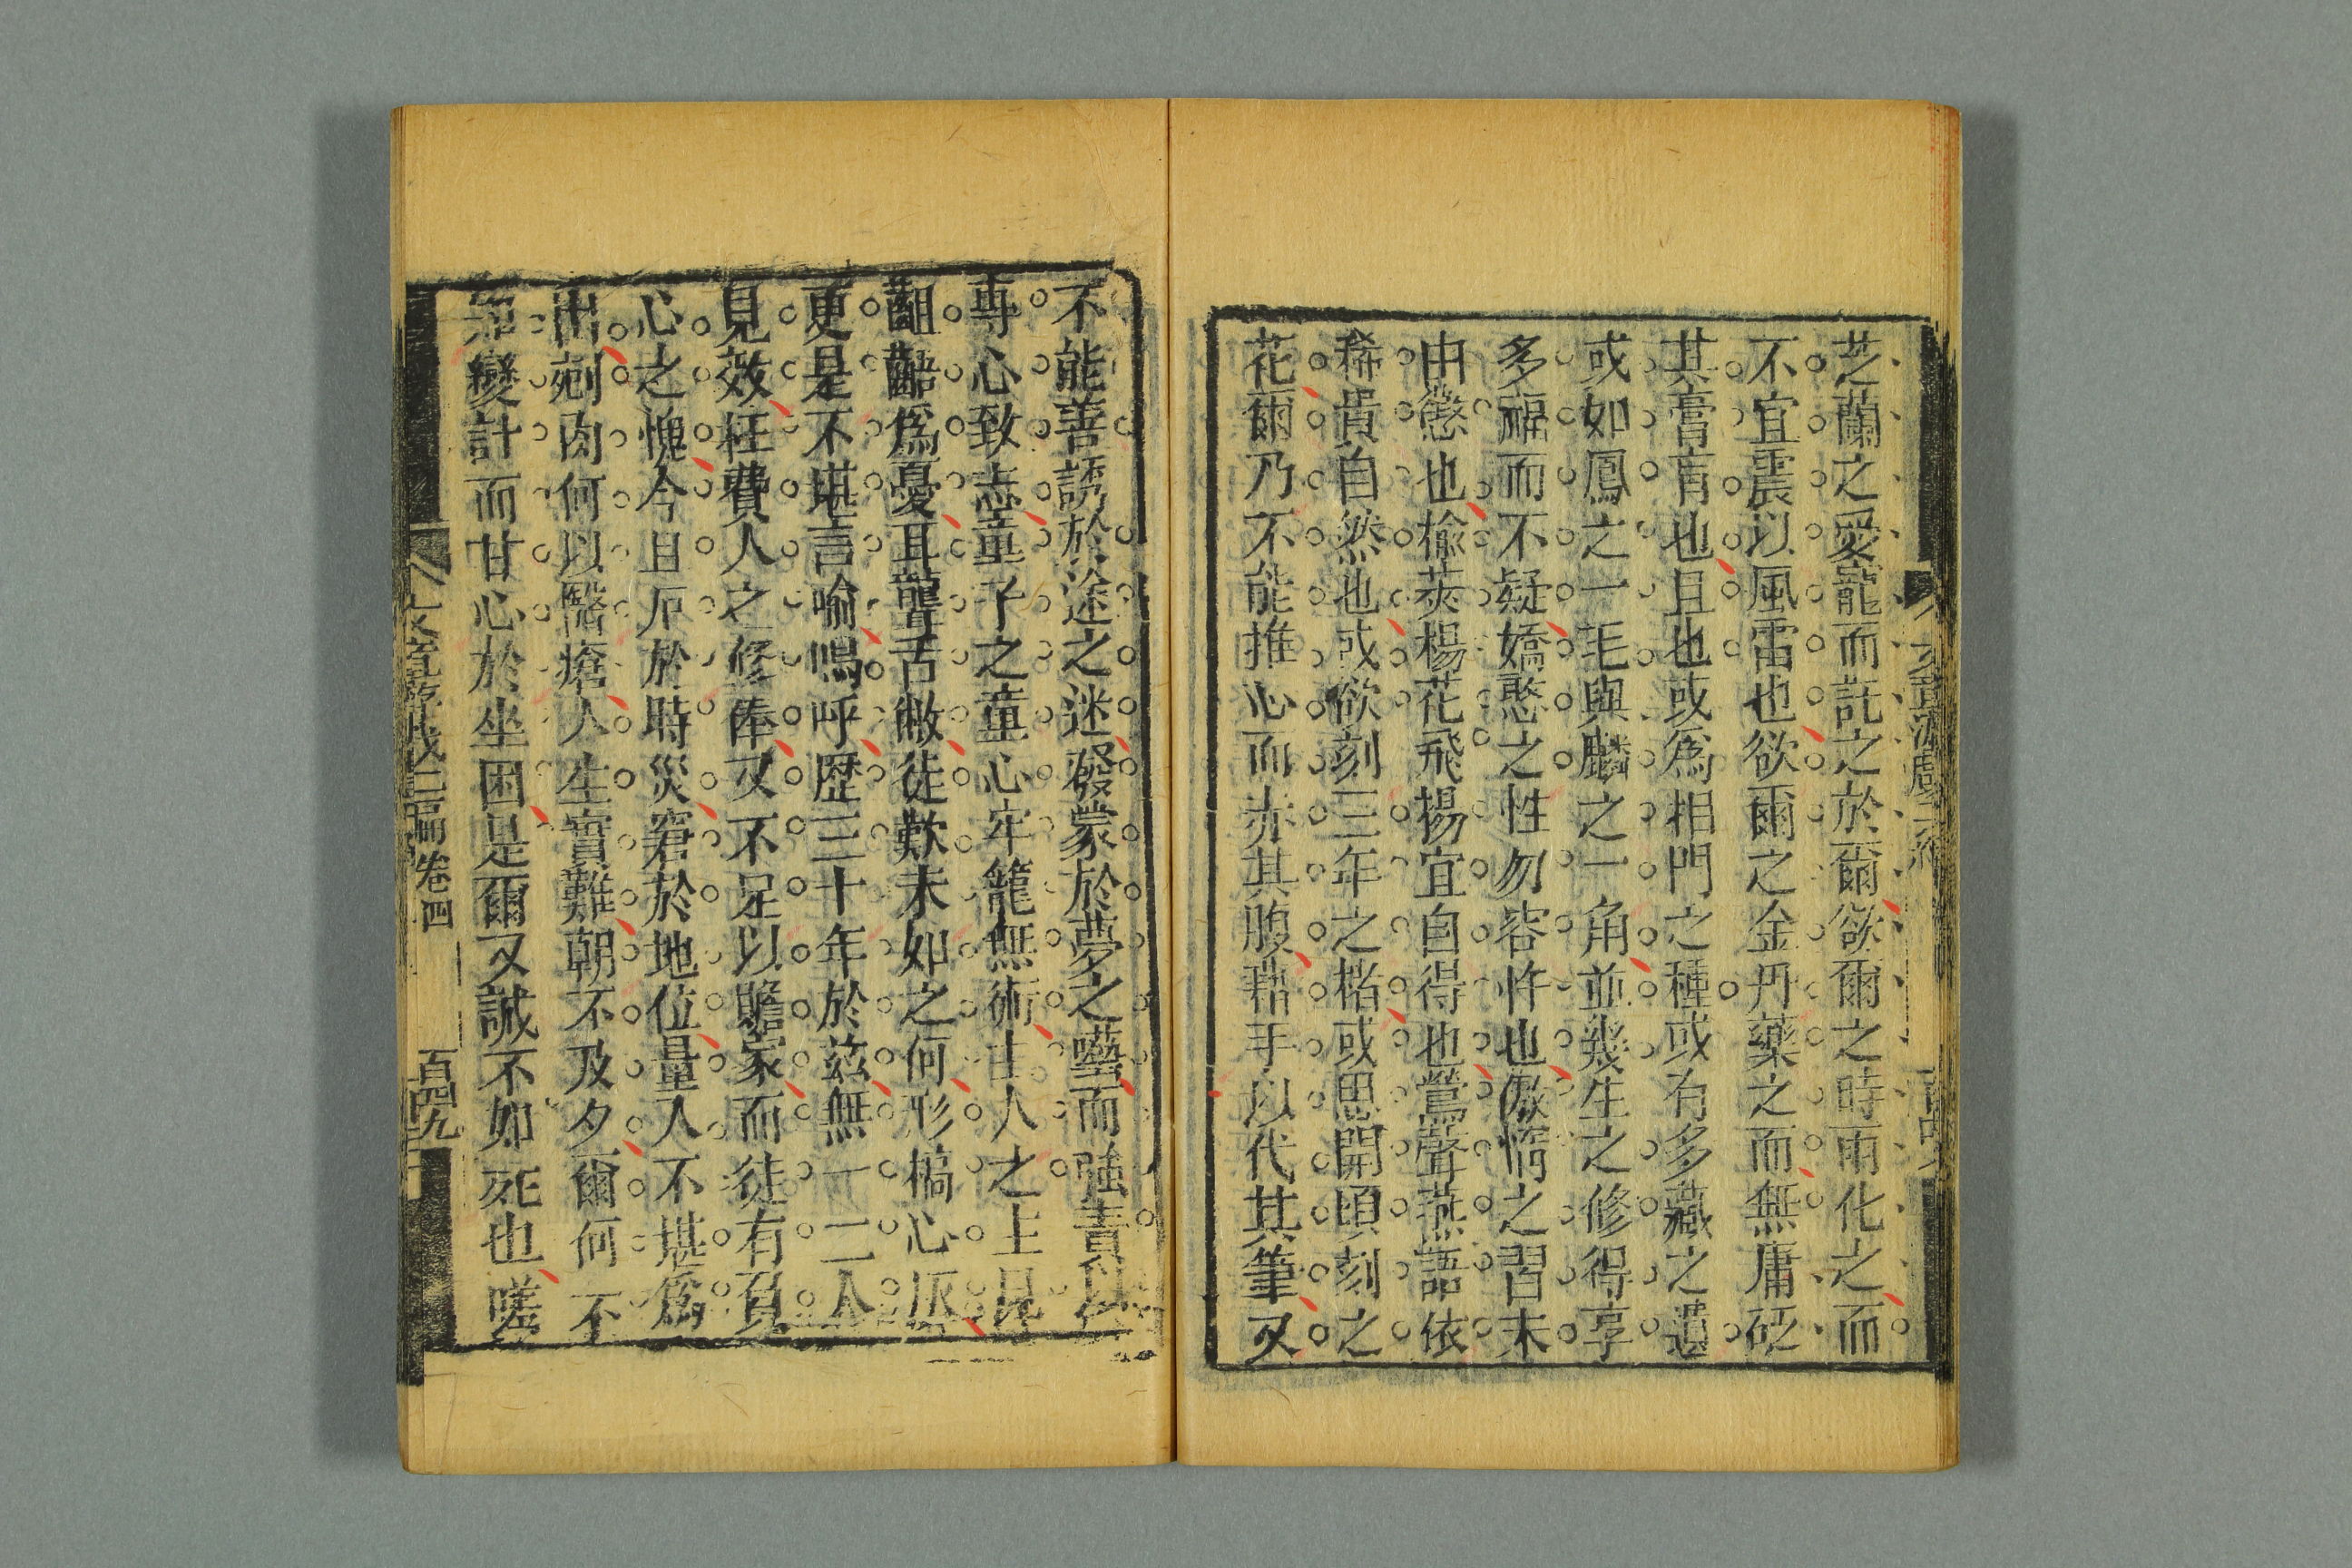 芝蘭之愛寵而託之於爾欲爾之時雨化之而
不宜震以風雷也欲爾之金丹藥之而無庸砭
其膏肓也且也或爲相門之種或有多藏之遺
或如鳳之一毛與麟之一角並幾生之修得享
多福而不疑嬌憨之性勿容忤也傲惰之習未
由懲也榆莢楊花飛揚宜自得也鶯聲燕語依
稀貴自然也或欲刻三年之楮或思開頃刻之
花爾乃不能推心而赤其腹藉手以代其筆又
不能善誘於途之迷發蒙於夢之囈而強責以
專心致志童子之童心牢籠無術主人之主見
齟齬爲憂耳聾舌敝徒歎未如之何形槁心灰
更是不堪言喻嗚呼歷三十年於茲無一二人
見效枉費人之修俸又不足以贍家而徒有負
心之愧今且厄於時災窘於地位量人不堪爲
出剜肉何以醫瘡人生實難朝不及夕爾何不
知變計而甘心於坐困是爾又誠不如死也嗟
文章遊戲三編 卷四 百四九